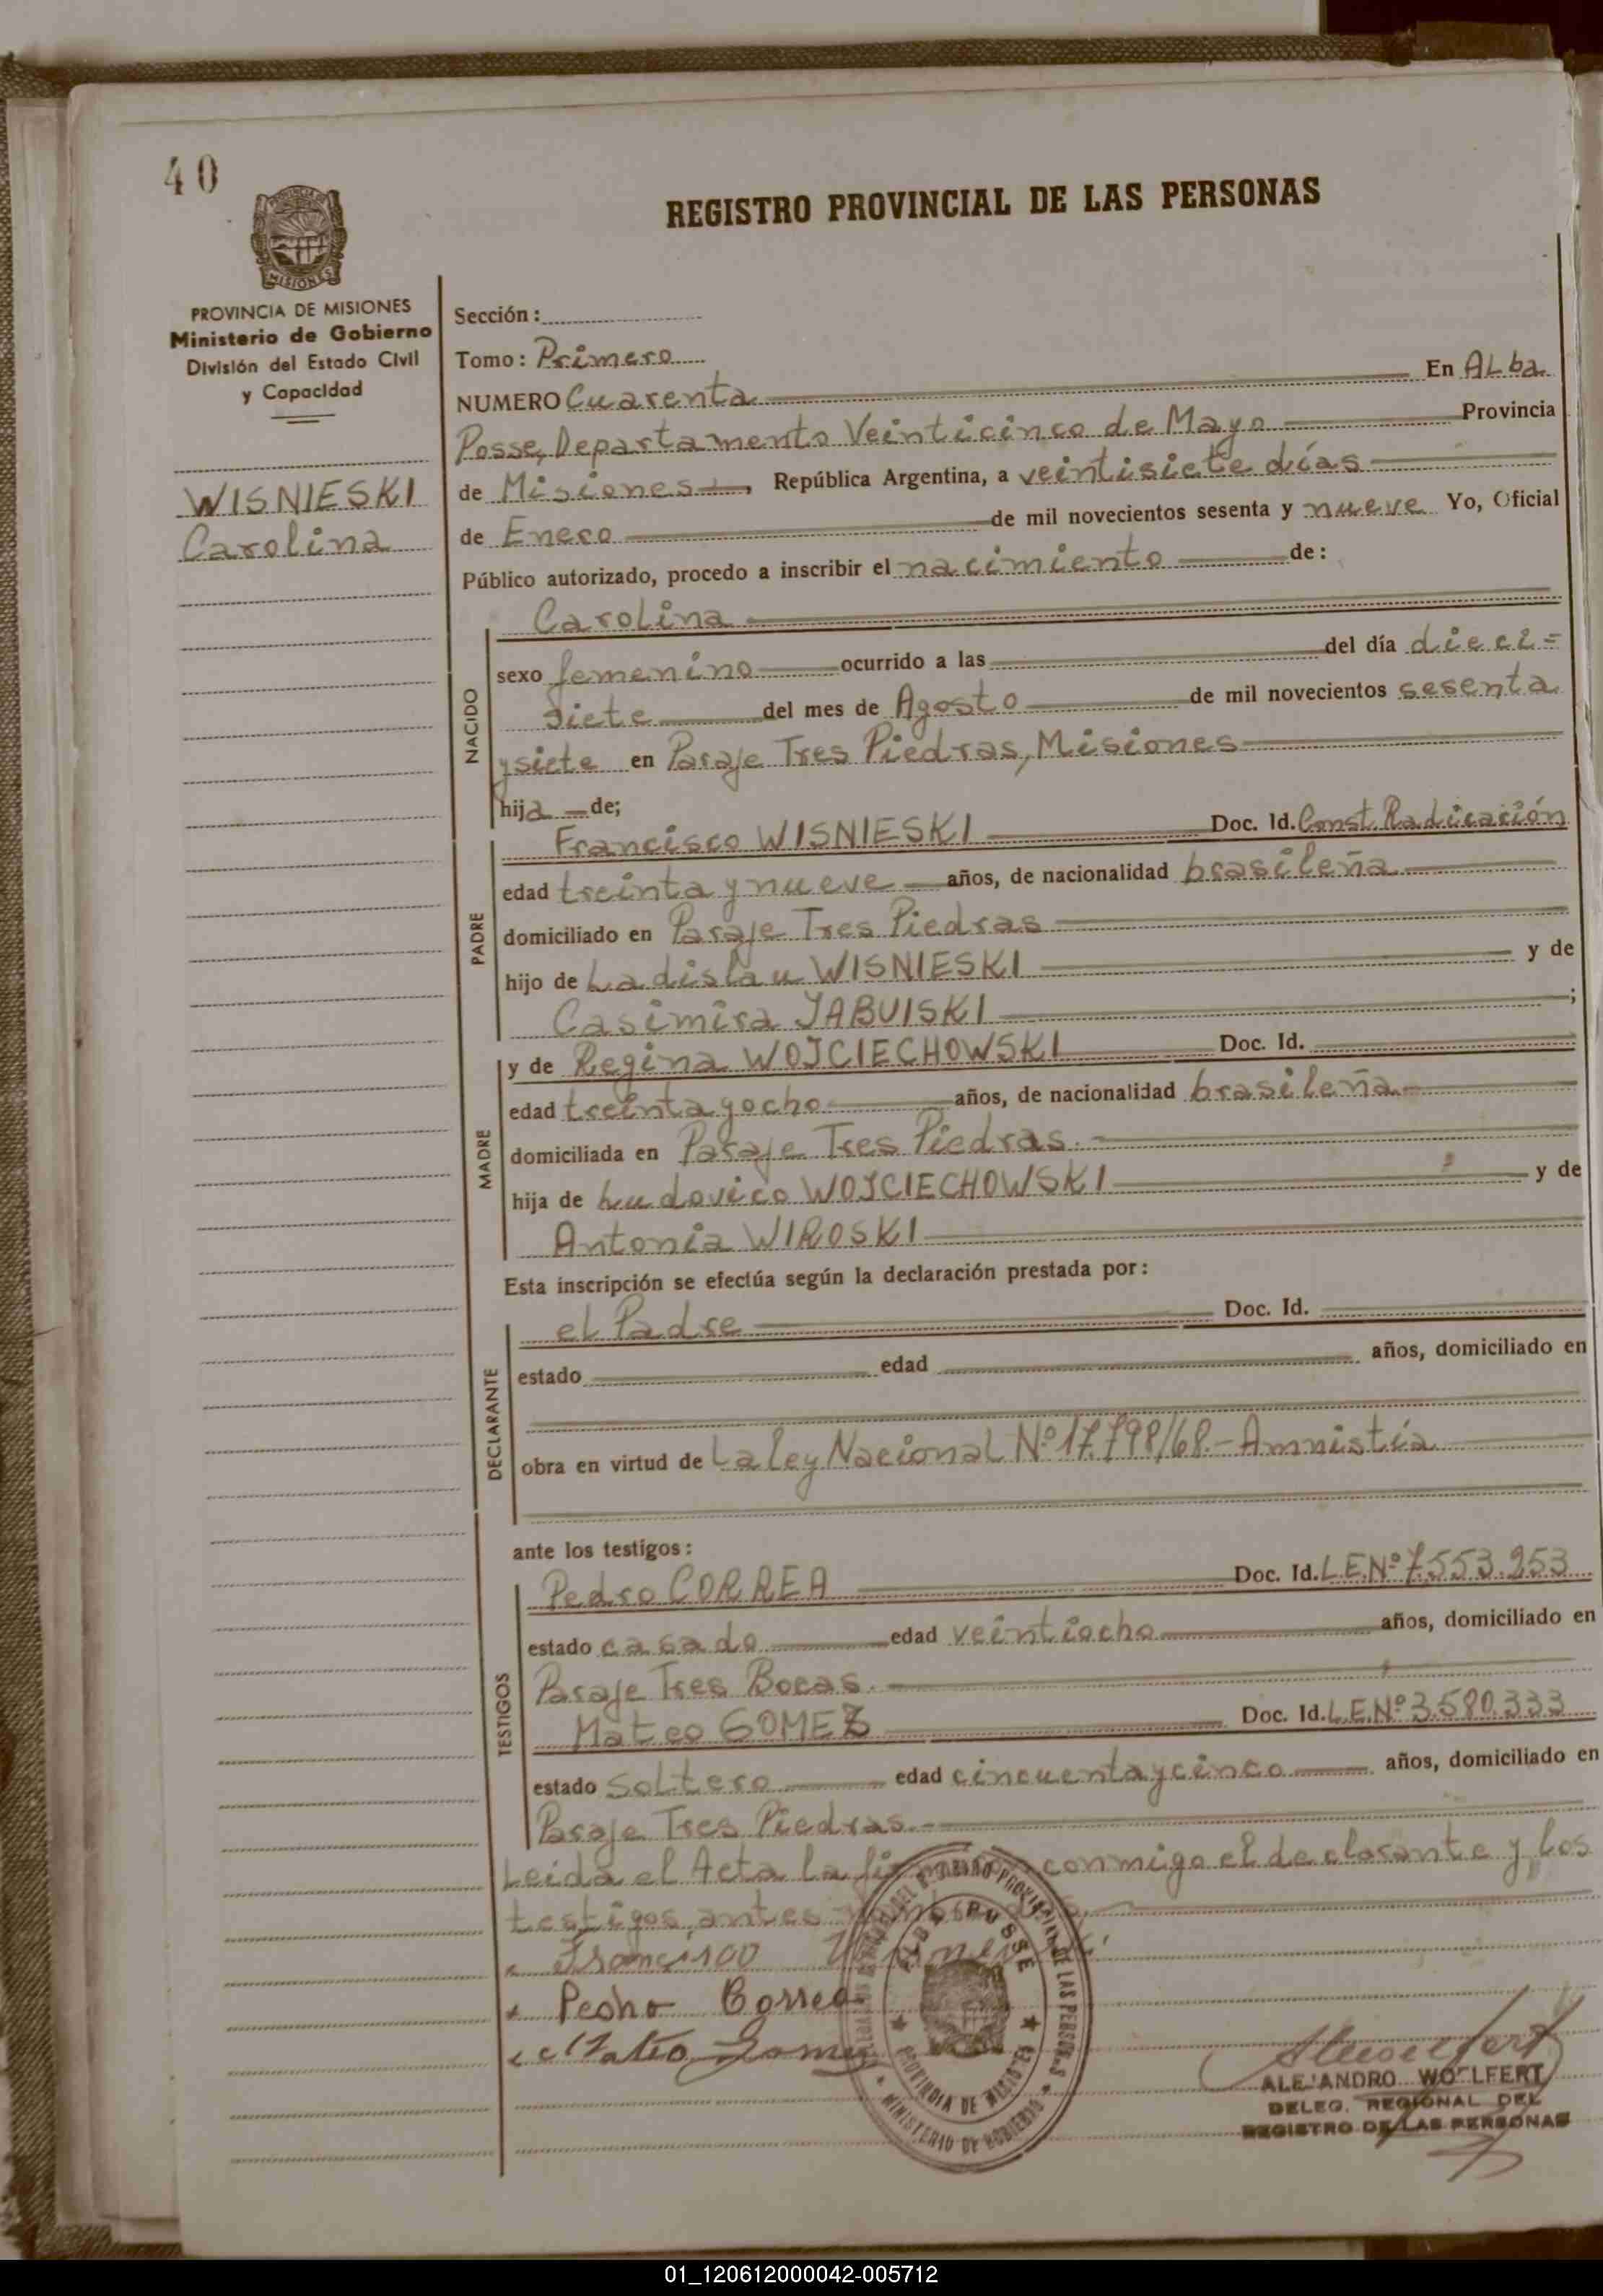 40
REGISTRO PROVINCIAL DE LAS PERSONAS
PROVINCIA DE
MISIONES
PROVINCIA DE MISIONES
Ministerio de Gobierno
División del Estado Civil
y Capacidad
WISNIESKI
Carolina
Sección:
Tomo: Primero
NUMERO Cuarenta En ALba
Posse, Departamento Veinticinco de Mayo Provincia
de Misiones, República Argentina, a veintisiete días
de Enero de mil novecientos sesenta y nueve Yo, Oficial
Público autorizado, procedo a inscribir el nacimiento de:
NACIDO
Carolina
sexo femenino ocurrido a las del día dieci=
siete del mes de Agosto de mil novecientos sesenta
y siete en Paraje Tres Piedras, Misiones
hija de;
PADRE
Francisco WISNIESKI Doc. Id. Const. Radicación
edad treinta y nueve años, de nacionalidad brasileña
domiciliado en Paraje Tres Piedras
hijo de Ladislau WISNIESKI y de
Casimira JABUISKI ;
MADRE
y de Regina WOJCIECHOWSKI Doc. Id.
edad treinta y ocho años, de nacionalidad brasileña
domiciliada en Paraje Tres Piedras.
hija de Ludovico WOJCIECHOWSKI y de
Antonia WIROSKI
Esta inscripción se efectúa según la declaración prestada por:
DECLARANTE
el Padre Doc. Id.
estado edad años, domiciliado en
obra en virtud de La ley Nacional Nº 17.798/68.- Amnistía
ante los testigos:
TESTIGOS
Pedro CORREA Doc. Id. L.E.Nº 7.553.253
estado casado edad veintiocho años, domiciliado en
Paraje Tres Bocas.
Mateo GOMEZ Doc. Id. L.E.Nº 3.580.333
estado soltero edad cincuenta y cinco años, domiciliado en
Paraje Tres Piedras.
Leída el Acta la conmigo el declarante y los
testigos antes
Francisco
Pedro Correa
Mateo Gomez
ALBA POSSE
PROVINCIA DE MISIONES
MINISTERIO DE GOBIERNO
ALEJANDRO WOELFERT
DELEG. REGIONAL DEL
REGISTRO DE LAS PERSONAS
01_120612000042-005712